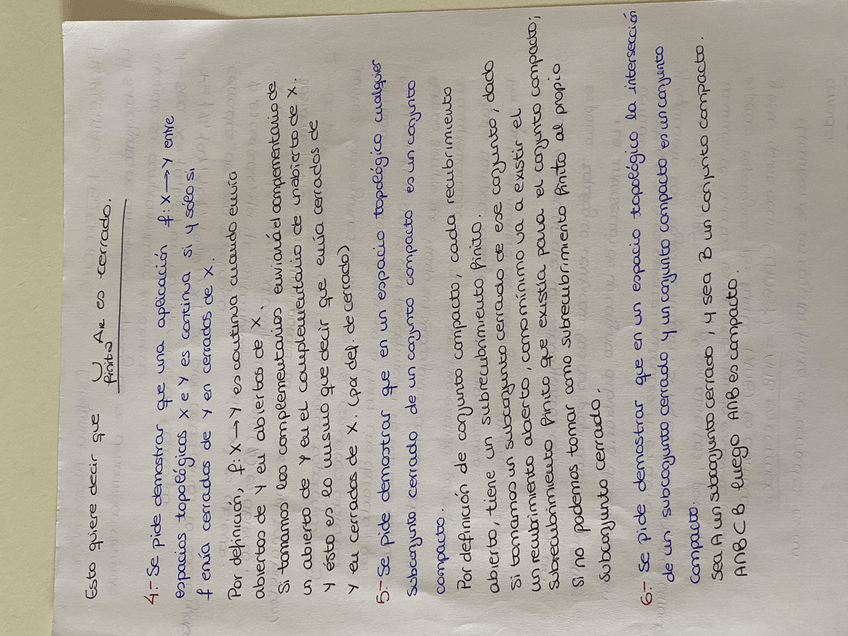 Esto quiere decir que ⋃ AK es cerrado.
finita
4.- Se pide demostrar que una aplicación f: X → Y entre
espacios topológicos X e Y es continua si y solo si
f envía cerrados de Y en cerrados de X.
Por definición, f: X → Y es continua cuando envía
abiertos de Y en abiertos de X.
Si tomamos los complementarios enviará el complementario de
un abierto de Y en el complementario de un abierto de X.
Y ésto es lo mismo que decir que envía cerrados de
Y en cerrados de X. (por def. de cerrado)
5.- Se pide demostrar que en un espacio topológico cualquier
subconjunto cerrado de un conjunto compacto es un conjunto
compacto.
Por definición de conjunto compacto, cada recubrimiento
abierto, tiene un subrecubrimiento finito.
Si tomamos un subconjunto cerrado de ese conjunto, dado
un recubrimiento abierto, como mínimo va a existir el
subrecubrimiento finito que existía para el conjunto compacto;
si no podemos tomar como subrecubrimiento finito al propio
subconjunto cerrado.
6.- Se pide demostrar que en un espacio topológico la intersección
de un subconjunto cerrado y un conjunto compacto es un conjunto
compacto.
Sea A un subconjunto cerrado, y sea B un conjunto compacto.
A∩B ⊂ B luego A∩B es compacto.